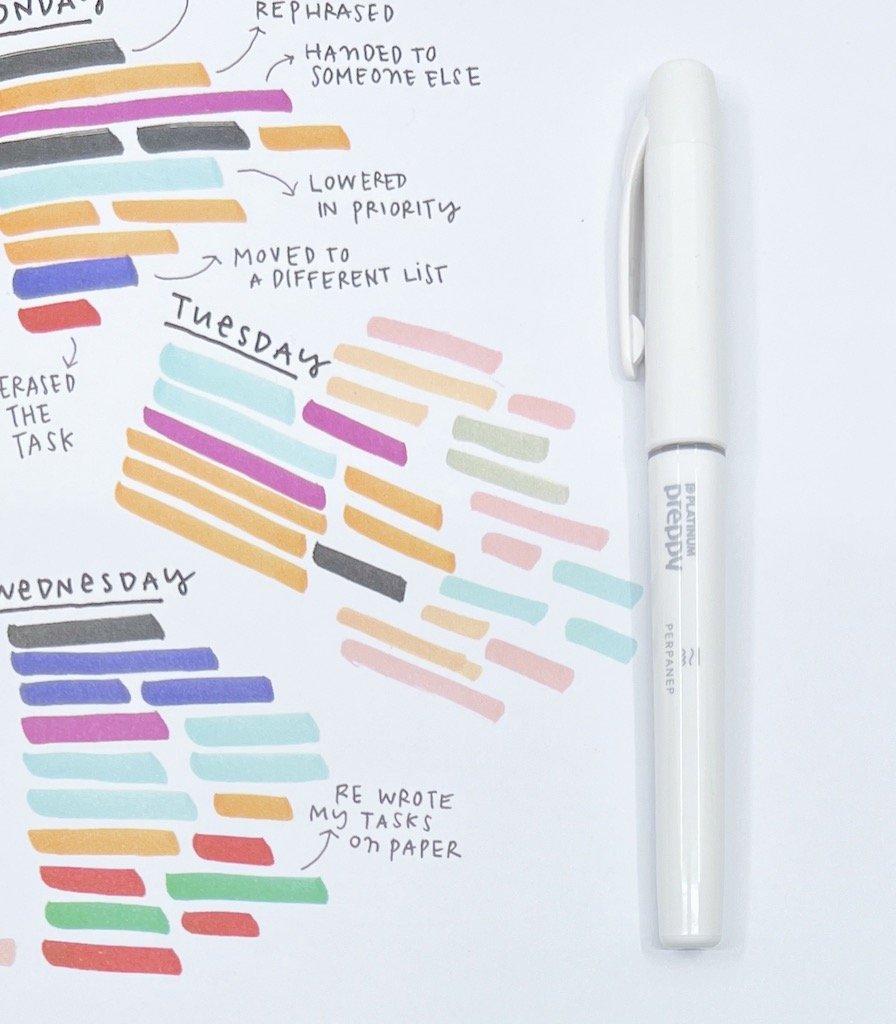 ONDAY
REPHRASED
HANDED TO
SOMEONE ELSE
LOWERED
IN PRIORITY
MOVED TO
A DIFFERENT LIST
ERASED
THE
TASK
TUESDAY
WEDNESDAY
RE WROTE
MY TASKS
ON PAPER
PLATINUM
preppy
PERPANEP